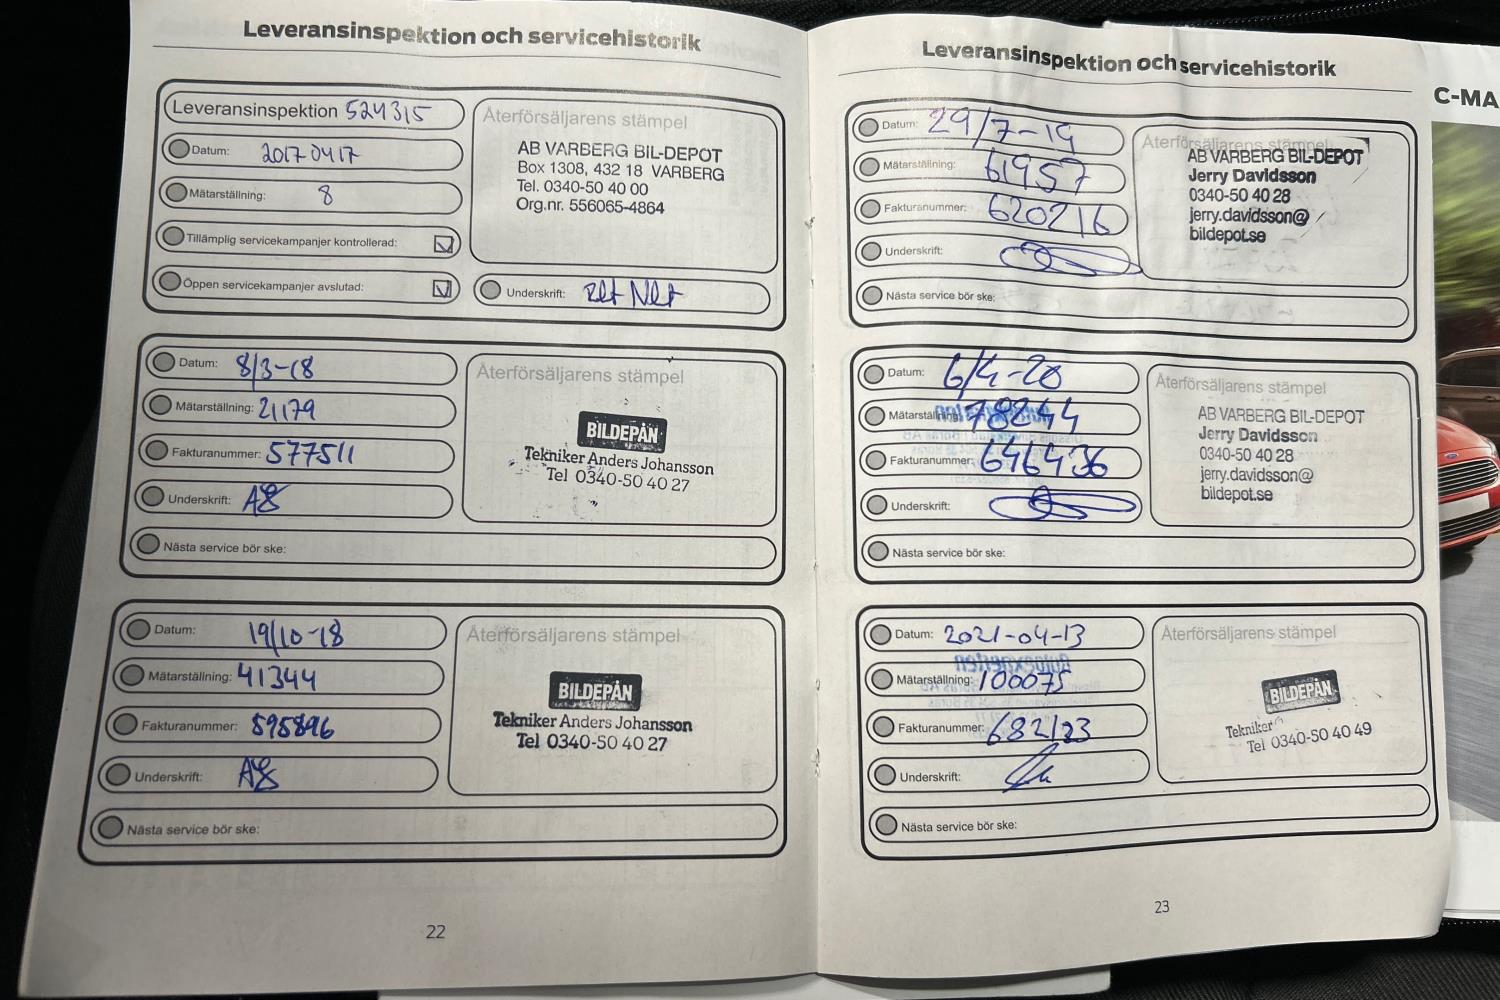 Leveransinspektion och servicehistorik
Leveransinspektion 524315
Datum: 20170417
Mätarställning: 8
Tillämplig servicekampanjer kontrollerad:
Öppen servicekampanjer avslutad:
Återförsäljarens stämpel
AB VARBERG BIL-DEPOT
Box 1308, 432 18 VARBERG
Tel. 0340-50 40 00
Org.nr. 556065-4864
Underskrift:
Datum: 8/3-18
Mätarställning: 21179
Fakturanummer: 577511
Underskrift:
Återförsäljarens stämpel
BILDEPÅN
Tekniker Anders Johansson
Tel 0340-50 40 27
Nästa service bör ske:
Datum: 19/10-18
Mätarställning: 41344
Fakturanummer: 595896
Underskrift:
Återförsäljarens stämpel
BILDEPÅN
Tekniker Anders Johansson
Tel 0340-50 40 27
Nästa service bör ske:
22
Leveransinspektion och servicehistorik
Datum: 29/7-19
Mätarställning: 61957
Fakturanummer: 620216
Underskrift:
Återförsäljarens stämpel
AB VARBERG BIL-DEPOT
Jerry Davidsson
0340-50 40 28
jerry.davidsson@
bildepot.se
Nästa service bör ske:
Datum: 6/4-20
Mätarställning: 78244
Fakturanummer: 646436
Underskrift:
Återförsäljarens stämpel
AB VARBERG BIL-DEPOT
Jerry Davidsson
0340-50 40 28
jerry.davidsson@
bildepot.se
Nästa service bör ske:
Datum: 2021-04-13
Mätarställning: 100075
Fakturanummer: 682123
Underskrift:
Återförsäljarens stämpel
BILDEPÅN
Tekniker
Tel 0340-50 40 49
Nästa service bör ske:
23
C-MA